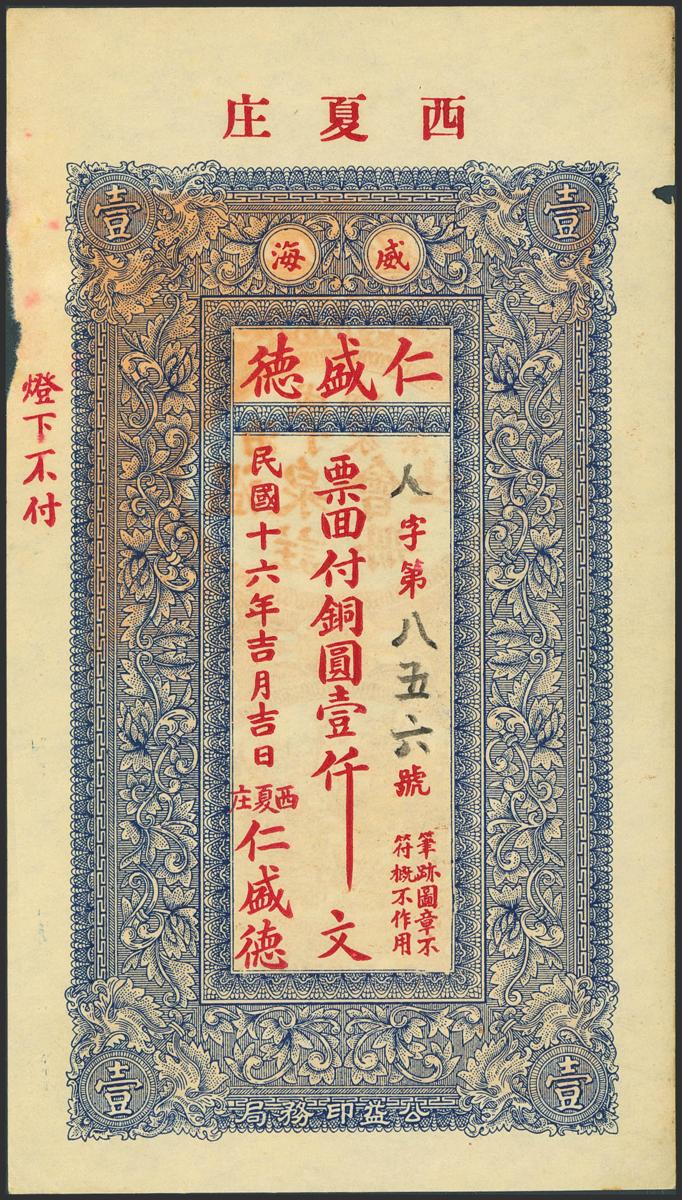 西夏庄
壹
壹
威海
仁盛德
人字第八五六號
筆跡圖章不
符概不作用
票面付銅圓壹仟文
民國十六年吉月吉日
西夏庄
仁盛德
燈下不付
壹
壹
公益印務局